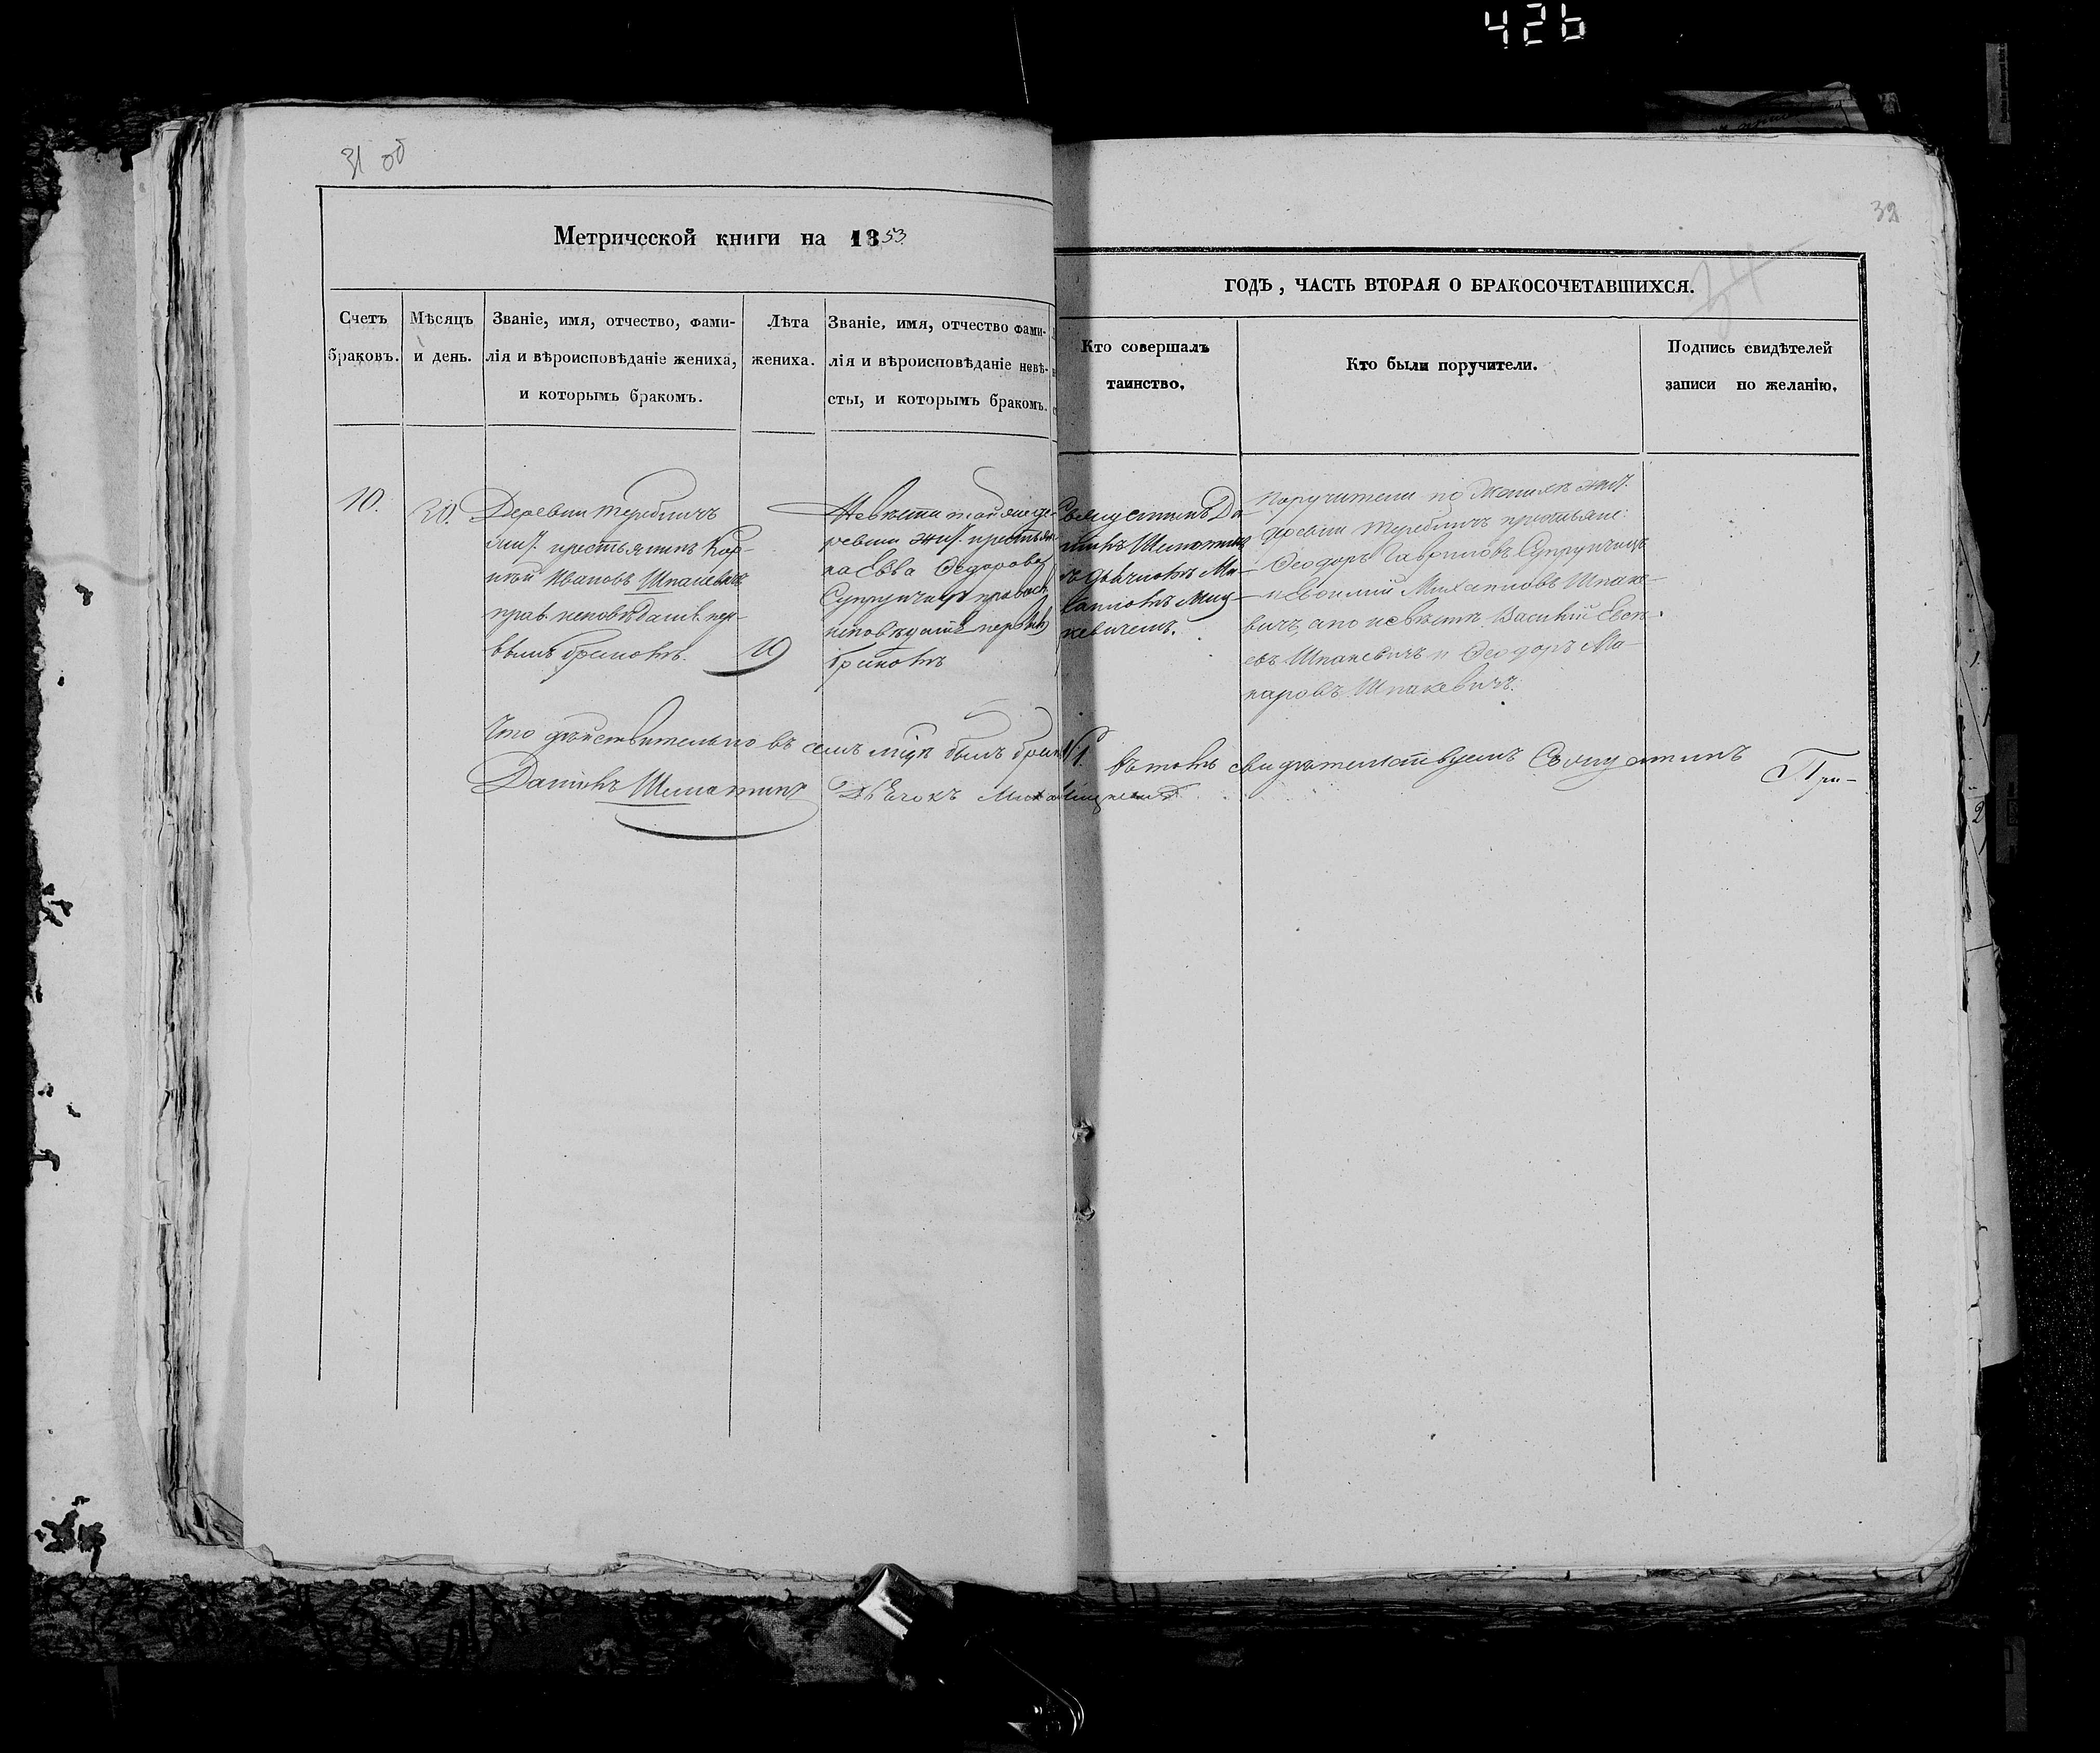 426
31 об
32
34
Метрической книги на 1853
годъ, часть вторая о бракосочетавшихся.
Счетъ
браковъ.
Мѣсяцъ
и день.
Званіе, имя, отчество, фами-
лія и вѣроисповѣданіе жениха,
и которымъ бракомъ.
Лѣта
жениха.
Званіе, имя, отчество фами-
лія и вѣроисповѣданіе невѣ-
сты, и которымъ бракомъ.
Кто совершалъ
таинство.
Кто были поручители.
Подпись свидѣтелей
записи по желанію.
10.
30.
Деревни Теребличъ
жит. крестьянинъ Кор-
нѣй Ивановъ Шпакевичъ
прав. исповѣданія. пер-
вымъ бракомъ.
19
Невѣста той же де-
ревни жит. крестьян-
ка Евва Ѳедорова
Супрунчикъ правосл.
исповѣданія первым
бракомъ
Священникъ Да
ніилъ Шиманскій
съ дьячкомъ Ми-
хаиломъ Миц-
кевичемъ.
Поручители по женихѣ жит.
деревни Теребличъ крестьяне:
Ѳеодоръ Гавриловъ Супрунчикъ
и Михаиловъ Шпаке-
вичъ, а по невѣстѣ Василій
евъ Шпакевичъ и Ѳеодоръ Ма-
каровъ Шпакевичъ.
Что дѣйствительно въ семъ мцѣ былъ бракъ 1. въ томъ свидѣтельствуемъ Священникъ Гри-
Даніилъ Дьячокъ Миха Мицкевичъ